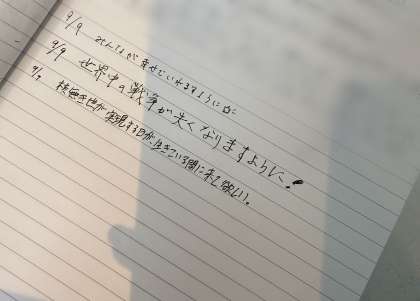 9/9 みんなが幸せでいれますように
9/9 世界中の戦争が失くなりますように!
9/9 核無き世が実現する日が、生きている間に来て欲しい。